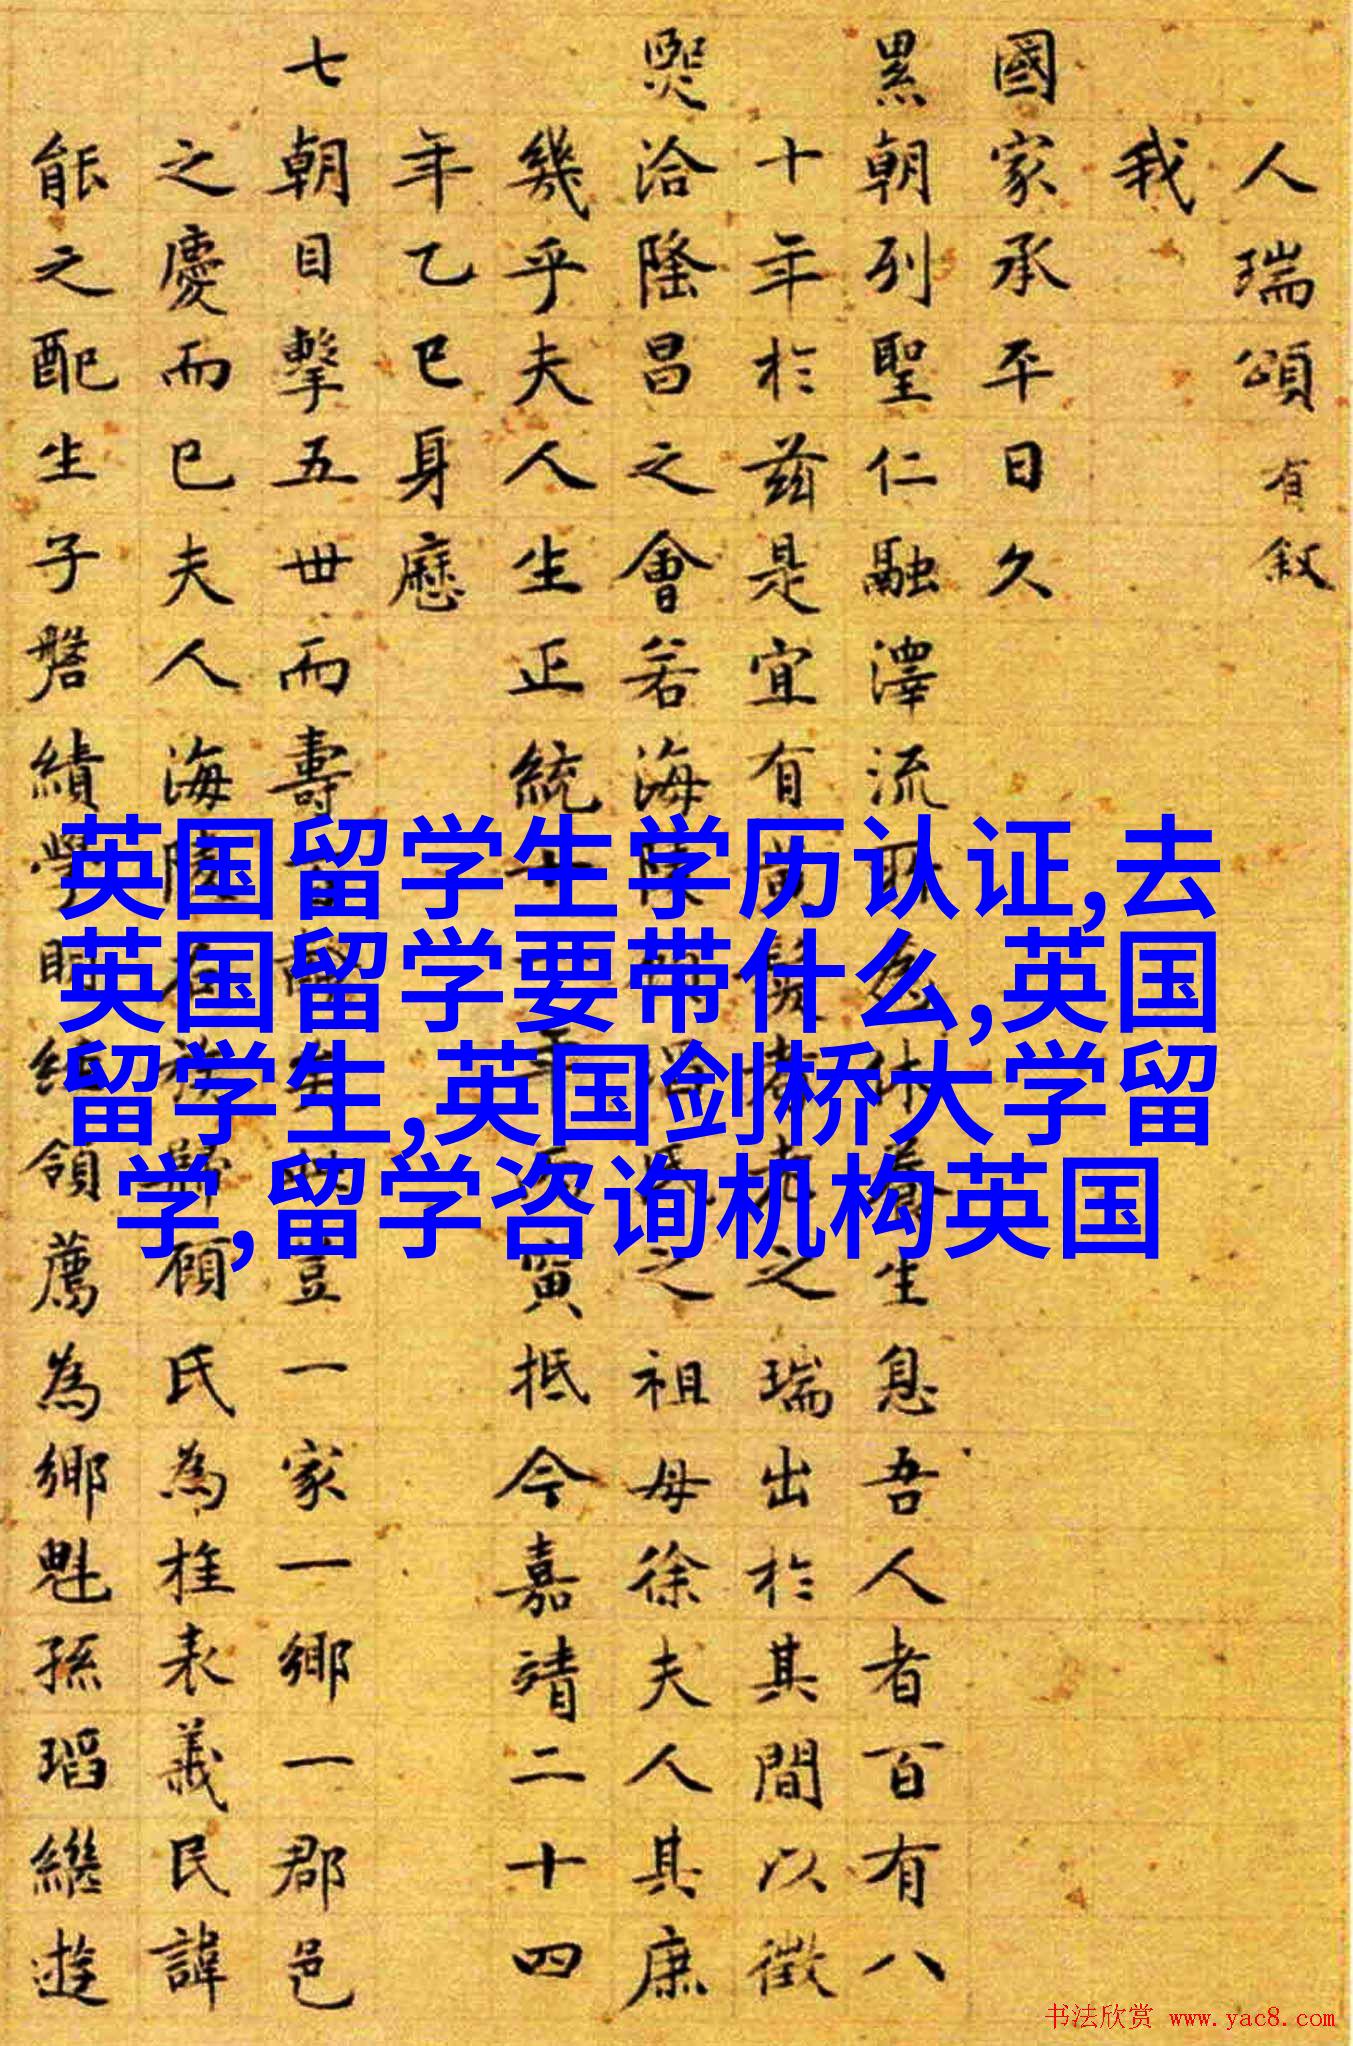 人瑞頌有叙
我
國家承平日久
累朝列聖仁融澤流
生息吾人者百有八
十年於兹是宜有黃髮
之瑞出於其間以徵
熙洽隆昌之會若海
之祖母徐夫人其庶
幾乎夫人生正統
寅抵今嘉靖二十四
年乙巳身歷
七朝目擊五世而壽
一家一鄉一郡邑
之慶而已夫人海陵
顧氏為推表義民諱
能之配生子磐績學
領薦為鄉魁孫瑫繼遊
英国留学生学历认证,去
英国留学要带什么,英国
留学生,英国剑桥大学留
学,留学咨询机构英国
书法欣赏 www.yac8.com